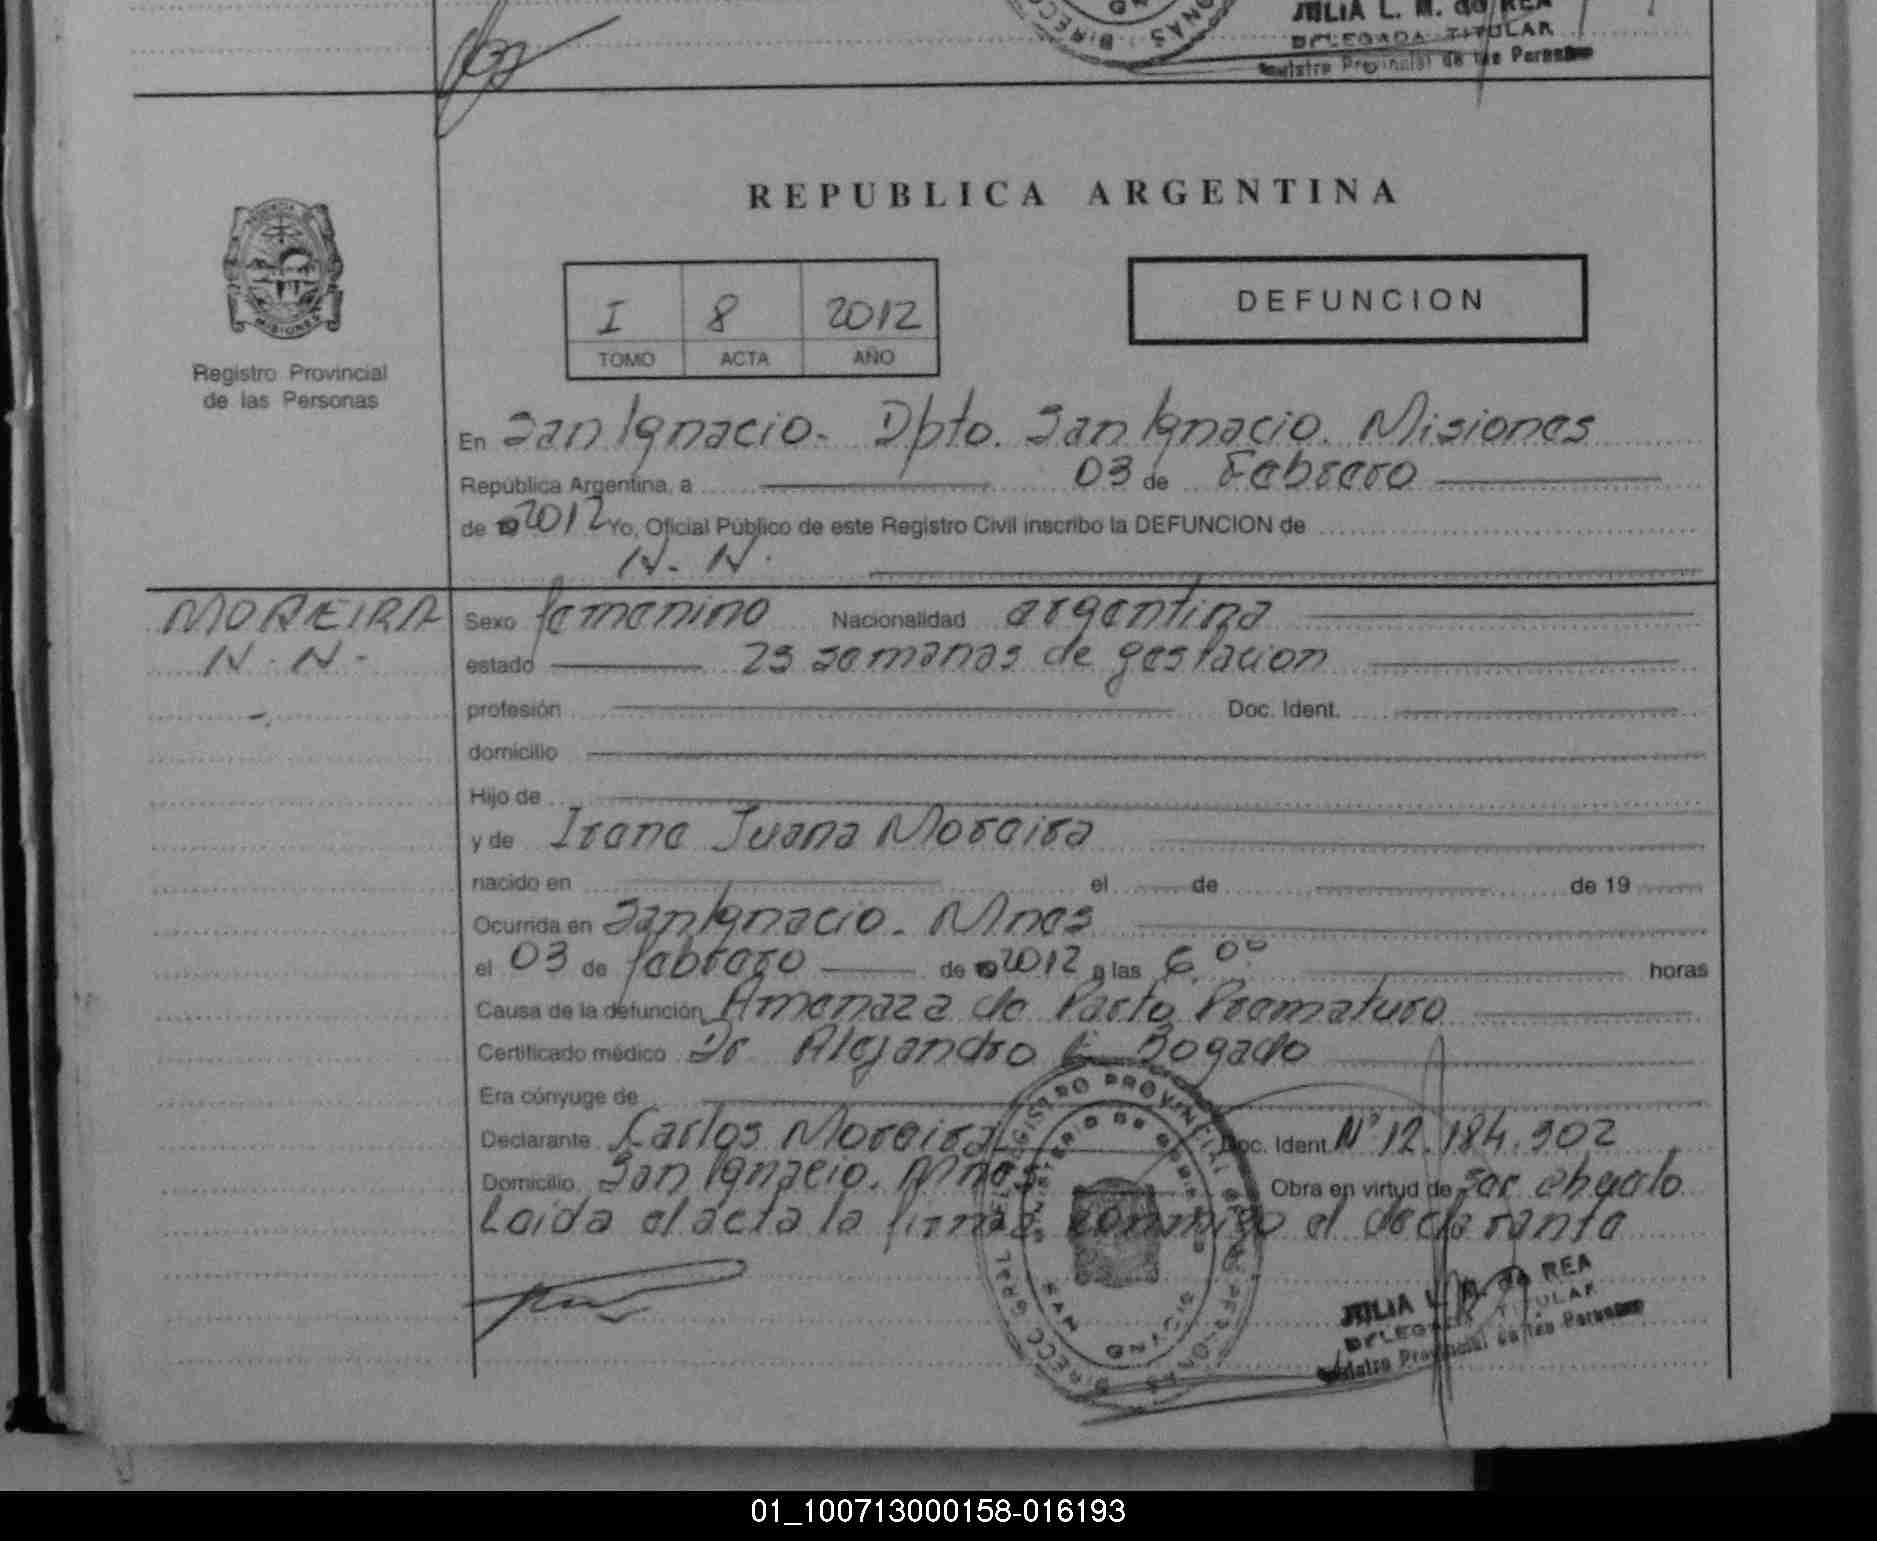 JULIA L. M. de REA
DELEGADA TITULAR
Registro Provincial de las Personas
REPUBLICA ARGENTINA
I 8 2012
TOMO ACTA AÑO
DEFUNCION
MISIONES
Registro Provincial
de las Personas
En San Ignacio. Dpto. San Ignacio. Misiones
República Argentina, a 03 de Febrero
de 2012 Yo, Oficial Público de este Registro Civil inscribo la DEFUNCION de
N. N.
MOREIRA
N. N.-
Sexo femenino Nacionalidad argentina
estado 23 semanas de gestacion
profesión Doc. Ident.
domicilio
Hijo de
y de Irene Juana Moreira
nacido en el de de 19
Ocurrida en San Ignacio. Mnes
el 03 de febrero de 2012 a las 6.00 horas
Causa de la defunción Amenaza de Parto Prematuro
Certificado médico Dr Alejandro Bogado
Era cónyuge de
Declarante Carlos Moreira Doc. Ident. Nº 12.184.902
Domicilio San Ignacio. Mnes Obra en virtud de ser abuelo
Leida el acta la firma conmigo el declarante
JULIA L. M. de REA
DELEGADA TITULAR
Registro Provincial de las Personas
01_100713000158-016193